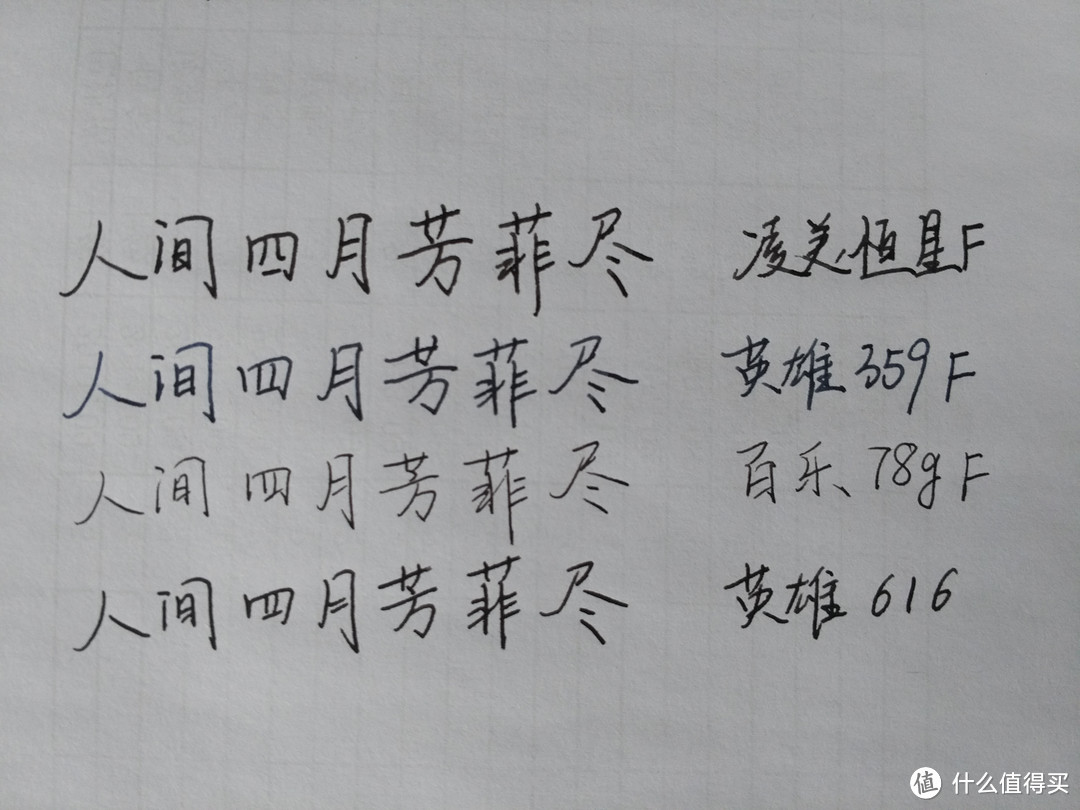 人间四月芳菲尽 凌美恒星F
人间四月芳菲尽 英雄359F
人间四月芳菲尽 百乐78gF
人间四月芳菲尽 英雄616
值 什么值得买